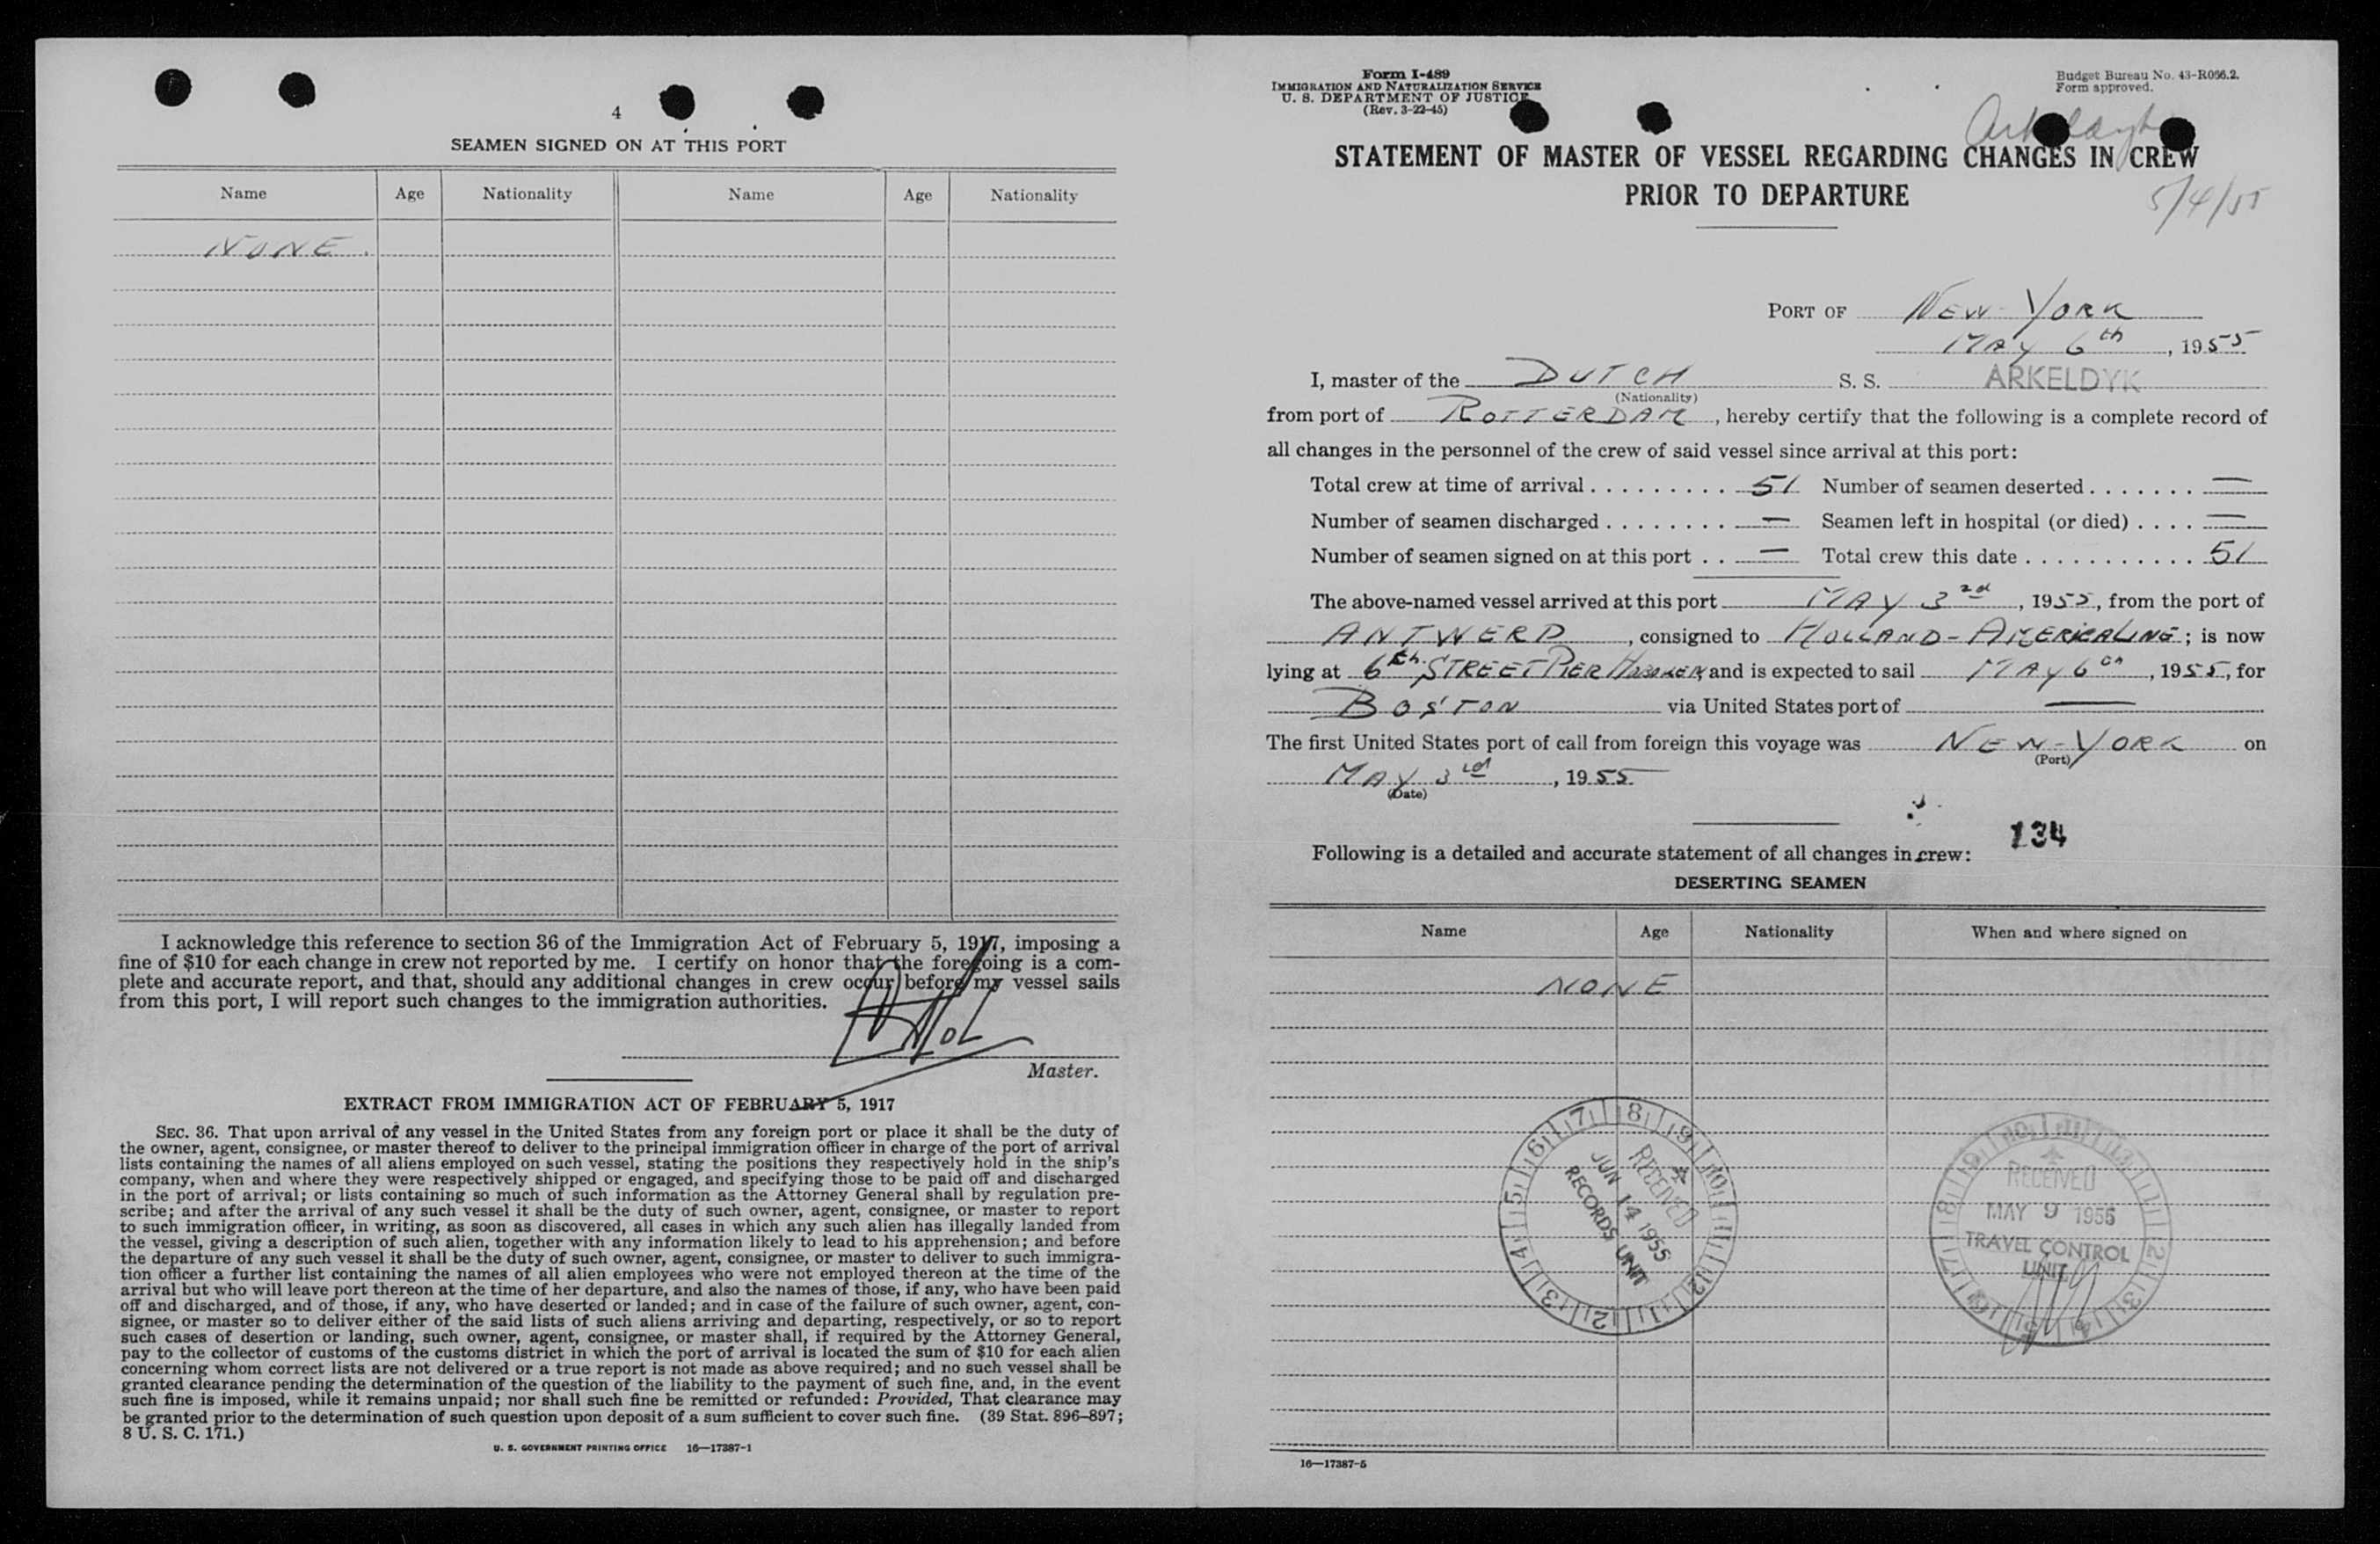 4
SEAMEN SIGNED ON AT THIS PORT
Name Age Nationality Name Age Nationality
NONE.
I acknowledge this reference to section 36 of the Immigration Act of February 5, 1917, imposing a
fine of $10 for each change in crew not reported by me. I certify on honor that the foregoing is a com-
plete and accurate report, and that, should any additional changes in crew occur before my vessel sails
from this port, I will report such changes to the immigration authorities.
Master.
EXTRACT FROM IMMIGRATION ACT OF FEBRUARY 5, 1917
SEC. 36. That upon arrival of any vessel in the United States from any foreign port or place it shall be the duty of
the owner, agent, consignee, or master thereof to deliver to the principal immigration officer in charge of the port of arrival
lists containing the names of all aliens employed on such vessel, stating the positions they respectively hold in the ship's
company, when and where they were respectively shipped or engaged, and specifying those to be paid off and discharged
in the port of arrival; or lists containing so much of such information as the Attorney General shall by regulation pre-
scribe; and after the arrival of any such vessel it shall be the duty of such owner, agent, consignee, or master to report
to such immigration officer, in writing, as soon as discovered, all cases in which any such alien has illegally landed from
the vessel, giving a description of such alien, together with any information likely to lead to his apprehension; and before
the departure of any such vessel it shall be the duty of such owner, agent, consignee, or master to deliver to such immigra-
tion officer a further list containing the names of all alien employees who were not employed thereon at the time of the
arrival but who will leave port thereon at the time of her departure, and also the names of those, if any, who have been paid
off and discharged, and of those, if any, who have deserted or landed; and in case of the failure of such owner, agent, con-
signee, or master so to deliver either of the said lists of such aliens arriving and departing, respectively, or so to report
such cases of desertion or landing, such owner, agent, consignee, or master shall, if required by the Attorney General,
pay to the collector of customs of the customs district in which the port of arrival is located the sum of $10 for each alien
concerning whom correct lists are not delivered or a true report is not made as above required; and no such vessel shall be
granted clearance pending the determination of the question of the liability to the payment of such fine, and, in the event
such fine is imposed, while it remains unpaid; nor shall such fine be remitted or refunded: Provided, That clearance may
be granted prior to the determination of such question upon deposit of a sum sufficient to cover such fine. (39 Stat. 896–897;
8 U. S. C. 171.)
U. S. GOVERNMENT PRINTING OFFICE 16—17387-1
Form I-489
IMMIGRATION AND NATURALIZATION SERVICE
U. S. DEPARTMENT OF JUSTICE
(Rev. 3-22-45)
Budget Bureau No. 43-R056.2.
Form approved.
STATEMENT OF MASTER OF VESSEL REGARDING CHANGES IN CREW
PRIOR TO DEPARTURE
5/4/55
PORT OF NEW-YORK
MAY 6th, 1955
I, master of the DUTCH S. S. ARKELDYK
(Nationality)
from port of ROTTERDAM, hereby certify that the following is a complete record of
all changes in the personnel of the crew of said vessel since arrival at this port:
Total crew at time of arrival 51 Number of seamen deserted —
Number of seamen discharged — Seamen left in hospital (or died) —
Number of seamen signed on at this port — Total crew this date 51
The above-named vessel arrived at this port MAY 3rd, 1955, from the port of
ANTWERP, consigned to HOLLAND-AMERICALINE; is now
lying at 6th STREET PIER HOBOKEN and is expected to sail MAY 6th, 1955, for
BOSTON via United States port of —
The first United States port of call from foreign this voyage was NEW-YORK on
(Port)
MAY 3rd, 1955
(Date)
134
Following is a detailed and accurate statement of all changes in crew:
DESERTING SEAMEN
Name Age Nationality When and where signed on
NONE
RECEIVED
JUN 14 1955
RECORDS UNIT
RECEIVED
MAY 9 1955
TRAVEL CONTROL
UNIT
16—17387-5